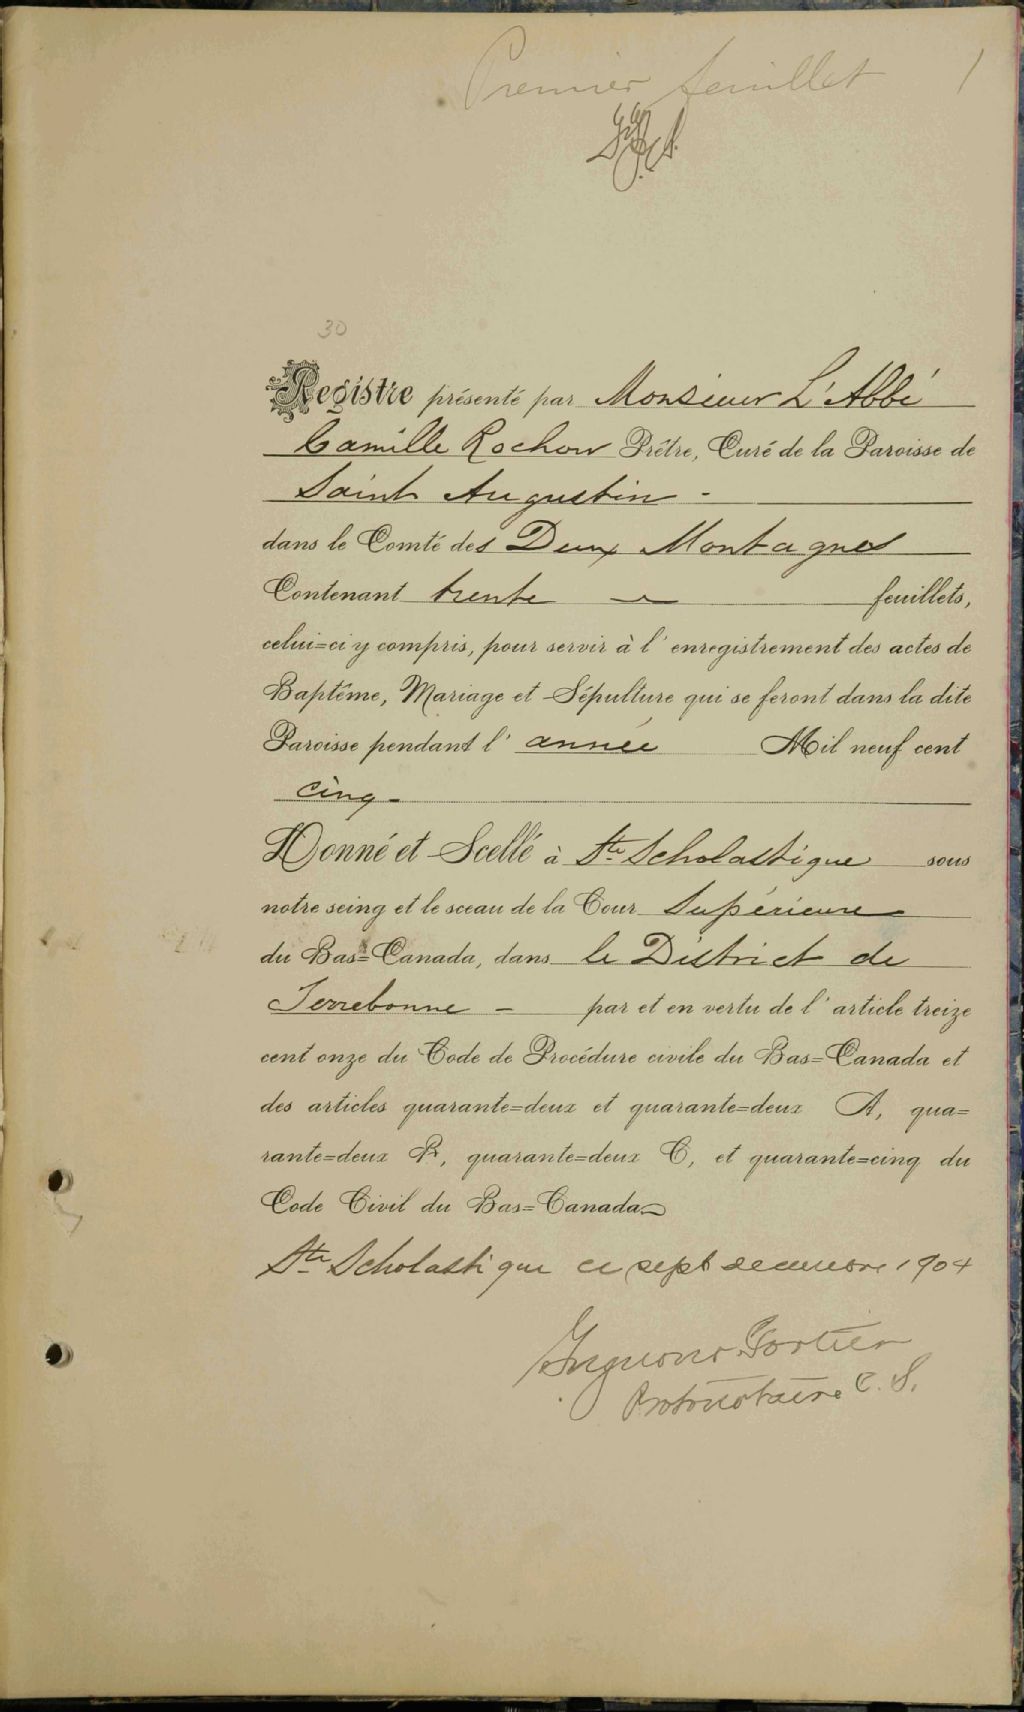 Premier feuillet 1
30
Registre présenté par Monsieur L'Abbé
Camille Rochon Prêtre, Curé de la Paroisse de
Saint Augustin -
dans le Comté des Deux Montagnes
Contenant trente — feuillets,
celui=ci y compris, pour servir à l'enregistrement des actes de
Baptême, Mariage et Sépulture qui se feront dans la dite
Paroisse pendant l'année Mil neuf cent
cinq -
Donné et Scellé à Ste Scholastique sous
notre seing et le sceau de la Cour Supérieure
du Bas=Canada, dans le District de
Terrebonne - par et en vertu de l'article treize
cent onze du Code de Procédure civile du Bas=Canada et
des articles quarante=deux et quarante=deux A, qua=
rante=deux B, quarante=deux C, et quarante=cinq du
Code Civil du Bas=Canada
Ste Scholastique ce sept decembre 1904
Fortier
Protonotaire C. S.